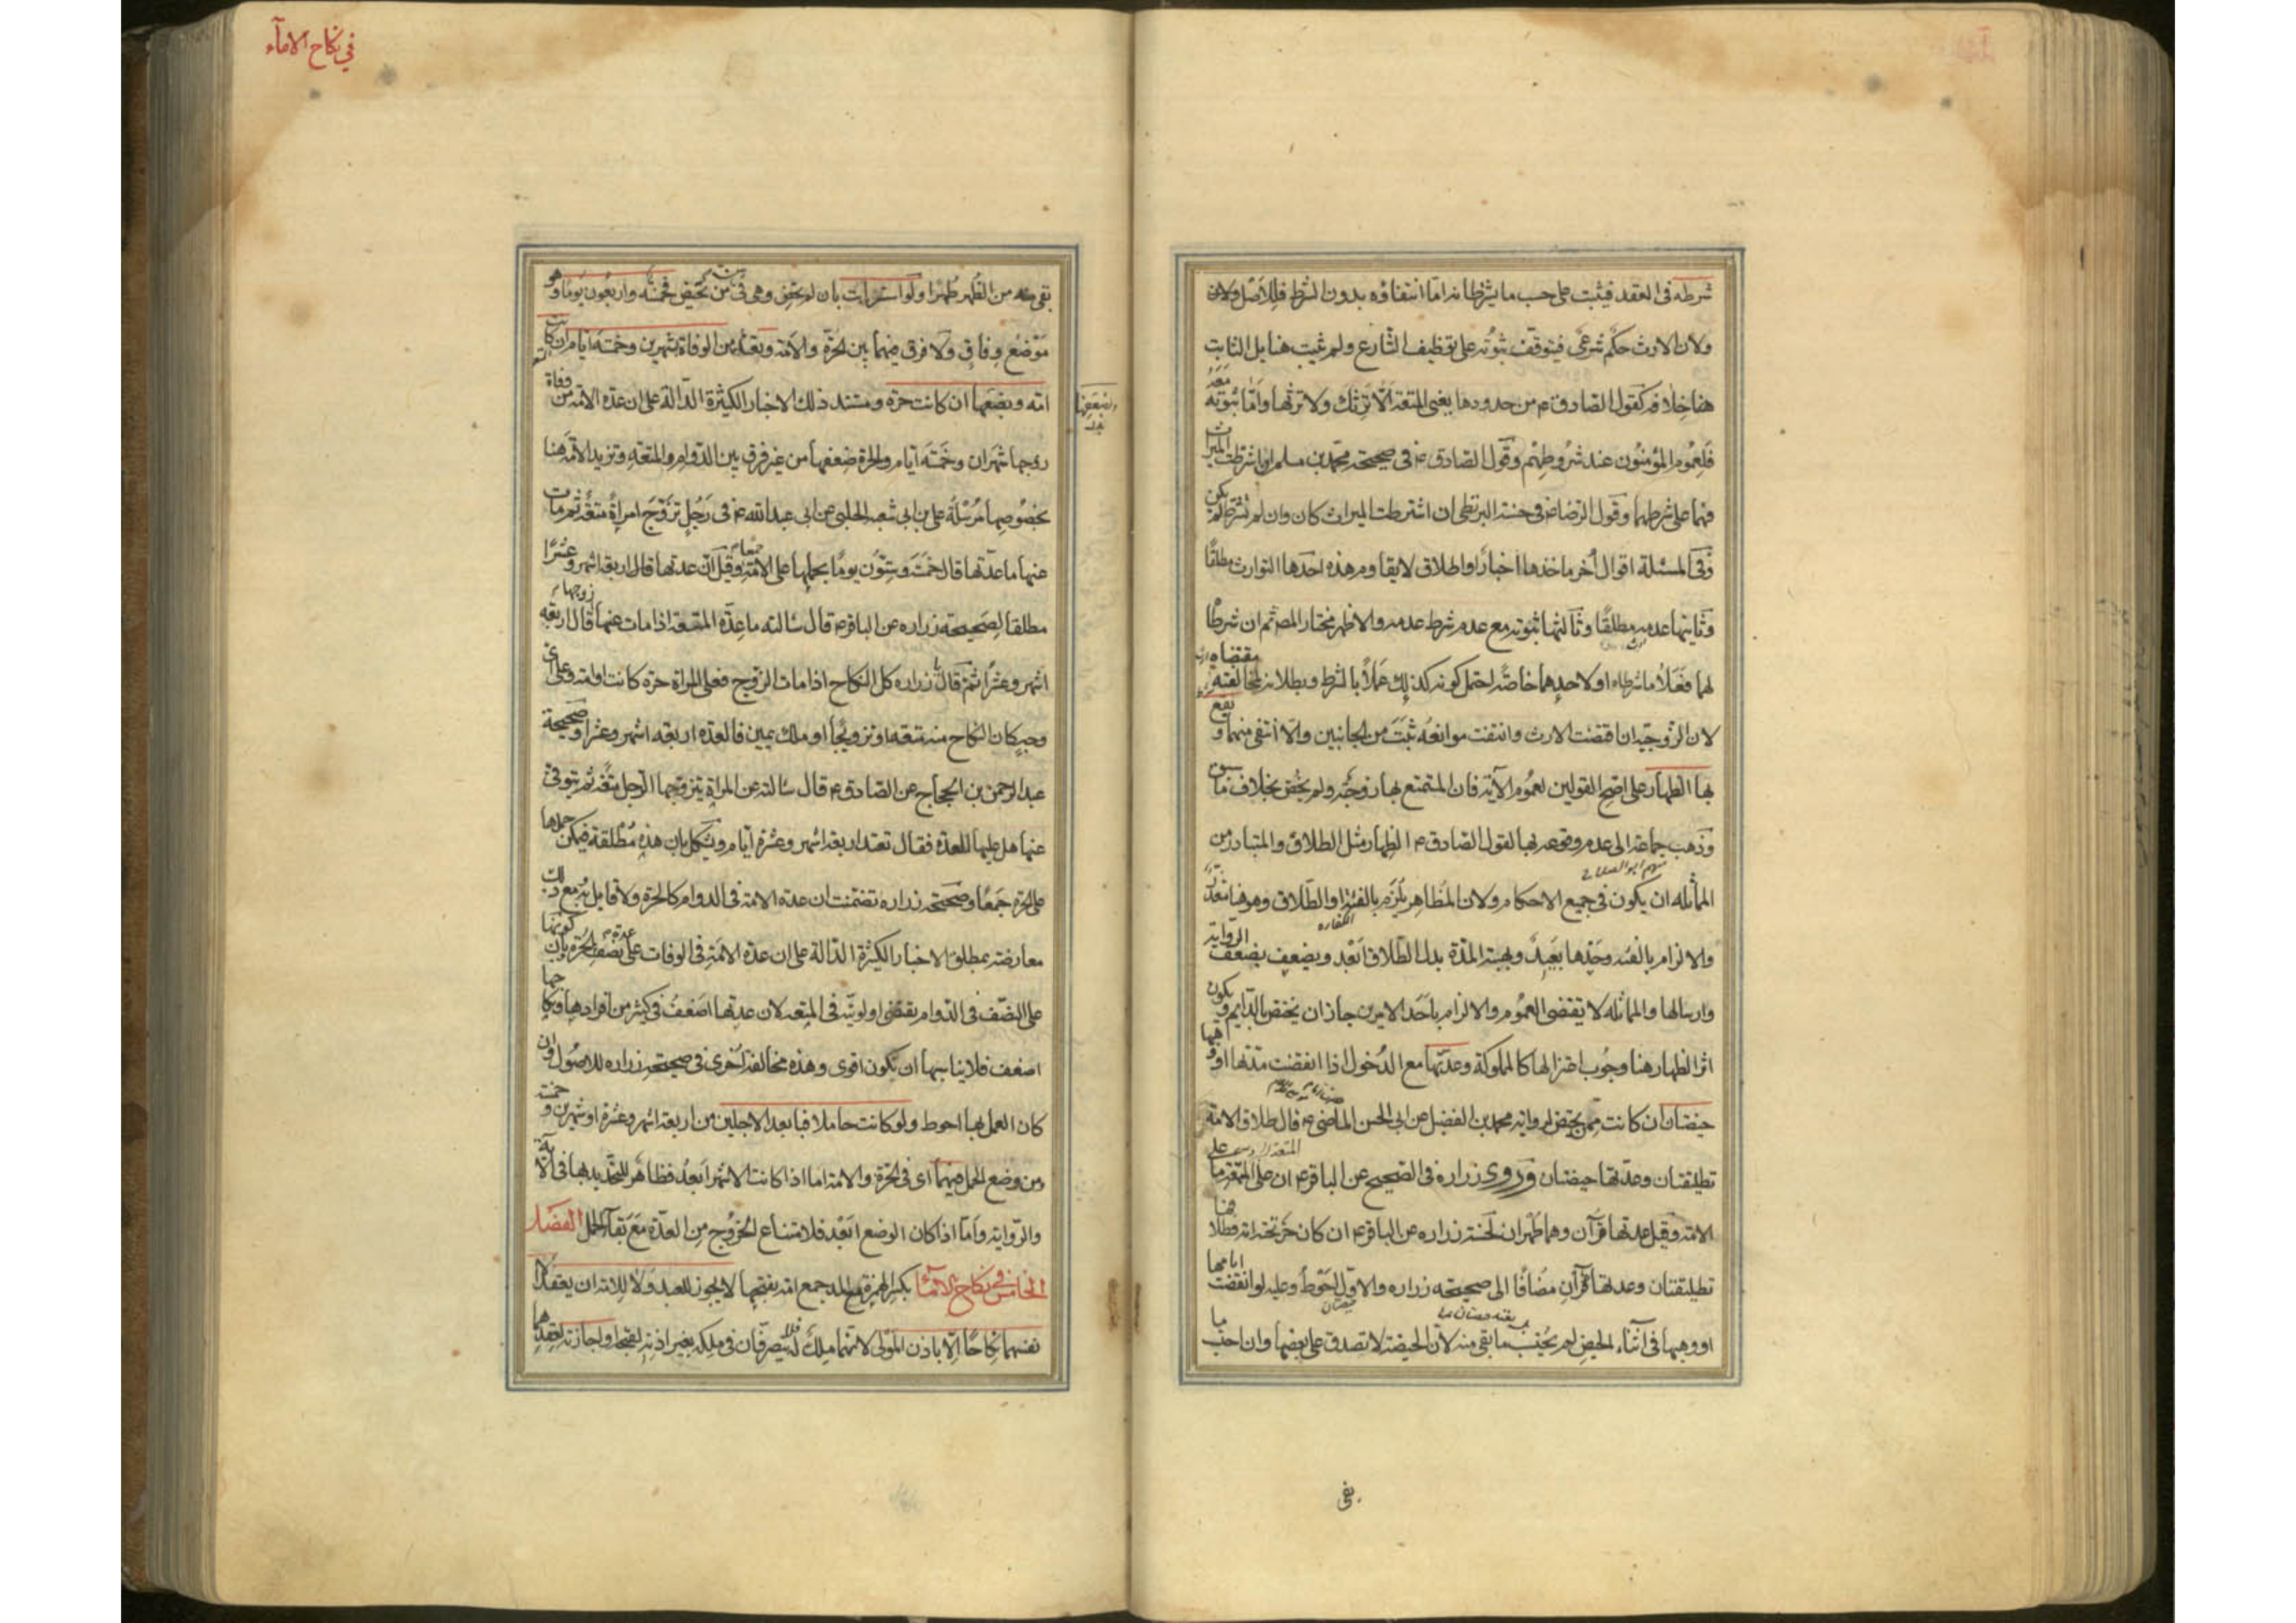 شرطه في العقد فيثبت على حسب ما يشترطانه اما انتفاؤه بدون الشرط فللاصل ولان
ولان الارث حكم شرعي فيتوقف ثبوته على توظيف الشارع ولم يثبت هنا بل الثابت
هنا خلافه كقول الصادق ع من حدودها يعني المتعة الا ترثك ولا ترثها واما ثبوته معه
فلعموم المؤمنون عند شروطهم وقول الصادق ع في صحيحة محمد بن مسلم ان اشترطت الميراث
فهما على شرطهما وقول الرضا ع في حسنة البزنطي ان اشترطت الميراث كان وان لم تشترط لم يكن
وفي المسئلة اقوال اخر ماخذها اخبار او اطلاق لا يقاوم هذه احدها التوارث مطلقا
وثانيها عدمه مطلقا وثالثها ثبوته مع عدم شرط عدمه والاظهر مختار المص ثم ان شرطا
لهما فعلا ما شرطاه او لاحدهما خاصة احتمل كونه كذلك عملا بالشرط وبطلانه لمخالفته مقتضاه
لان الزوجية ان اقتضت الارث وانتفت موانعه ثبت من الجانبين والا انتفى منهما ويقع
بها الظهار على اصح القولين لعموم الاية فان المتمتع بها زوجة ولم يخص بخلاف ما سبق
وذهب جماعة الى عدم وقوعه بها لقول الصادق ع الظهار مثل الطلاق والمتبادر من
المماثلة ان يكون في جميع الاحكام ولان المظاهر يلزم بالفئة او الطلاق وهو هنا متعذر
والالزام بالفئة وحدها بعيد وبهبة المدة بدل الطلاق ابعد ويضعف بضعف الرواية
وارسالها والمماثلة لا يقتضى العموم والالزام باحد الامرين جاز ان يختص بالدايم ويكون
اثر الظهار هنا وجوب اعتزالها كالمملوكة وعدتها مع الدخول اذا انقضت مدتها او وهبها
حيضتان ان كانت ممن يحيض لرواية محمد بن الفضيل عن ابي الحسن الماضى ع قال طلاق الامة
تطليقتان وعدتها حيضتان وروى زراره في الصحيح عن الباقر ع ان على المتعة ما على
الامة وقيل عدتها قرآن وهما طهران لحسنة زراره عن الباقر ع ان كان حر تحته امة فطلاقها
تطليقتان وعدتها قرآن مضافا الى صحيحة زراره والاول احوط وعليه لو انقضت ايامها
او وهبها في اثناء الحيض لم يحتسب ما بقى منه لان الحيضة لا تصدق على بعضها وان احتسب ما
بقي
في نكاح الاماء
بقى من الطهر طهرا ولو استرابت بان لم تحض وهي في سن من تحيض فخمسة واربعون يوما وهو
موضع وفاق ولا فرق فيهما بين الحرة والامة وتعتد من الوفاة بشهرين وخمسة ايام ان كانت
امة وبضعفها ان كانت حرة ومستند ذلك الاخبار الكثيرة الدالة على ان عدة الامة من وفاة
زوجها شهران وخمسة ايام والحرة ضعفها من غير فرق بين الدوام والمتعة وتزيد الامة هنا
بخصوصها مرسلة على بن ابي شعبة الحلبي عن ابي عبدالله ع في رجل تزوج امراة متعة ثم مات
عنها ما عدتها قال خمسة وستون يوما بحملها على الامة جمعا وقيل ان عدتها قال اربعة اشهر وعشرا
مطلقا لصحيحة زراره عن الباقر ع قال سالته ما عدة المتعة اذا مات عنها زوجها قال اربعة
اشهر وعشرا ثم قال يا زراره كل النكاح اذا مات الزوج فعلى المراة حرة كانت او امة وعلى اى
وجه كان النكاح منه متعة او تزويجا او ملك يمين فالعدة اربعة اشهر وعشرا وصحيحة
عبد الرحمن بن الحجاج عن الصادق ع قال سالته عن المراة يتزوجها الرجل متعة ثم يتوفى
عنها هل عليها العدة فقال تعتد اربعة اشهر وعشرة ايام ويشكل بان هذه مطلقة فيمكن حملها
على الحرة جمعا وصحيحة زراره تضمنت ان عدة الامة في الدوام كالحرة ولا قايل به مع ذلك
معارضة بمطلق الاخبار الكثيرة الدالة على ان عدة الامة في الوفات على نصف عدة الحرة بان كونها
على النصف في الدوام يقتضى اولويته في المتعة لان عدتها اضعف في كثير من افرادها
اضعف فلا يناسبها ان يكون اقوى وهذه مخالفة اخرى في صحيحة زراره للاصول وان
كان العمل بها احوط ولو كانت حاملا فبابعد الاجلين من اربعة اشهر وعشرة او شهرين وخمسة
ومن وضع الحمل فيهما اى في الحرة والامة اما اذا كانت الاشهر ابعد فظاهر للتحديد بها في الاية
والرواية واما اذا كان الوضع ابعد فلامتناع الخروج من العدة مع بقاء الحمل الفصل
الخامس في نكاح الاماء بكسر الهمزة مع المد جمع امة بفتحها لا يجوز للعبد ولا للامة ان يعقدا
لانفسهما نكاحا الا باذن المولى لانهما ملك له فلا يتصرفان في ملكه بغير اذنه لقبحه او اجازته لعقدهما